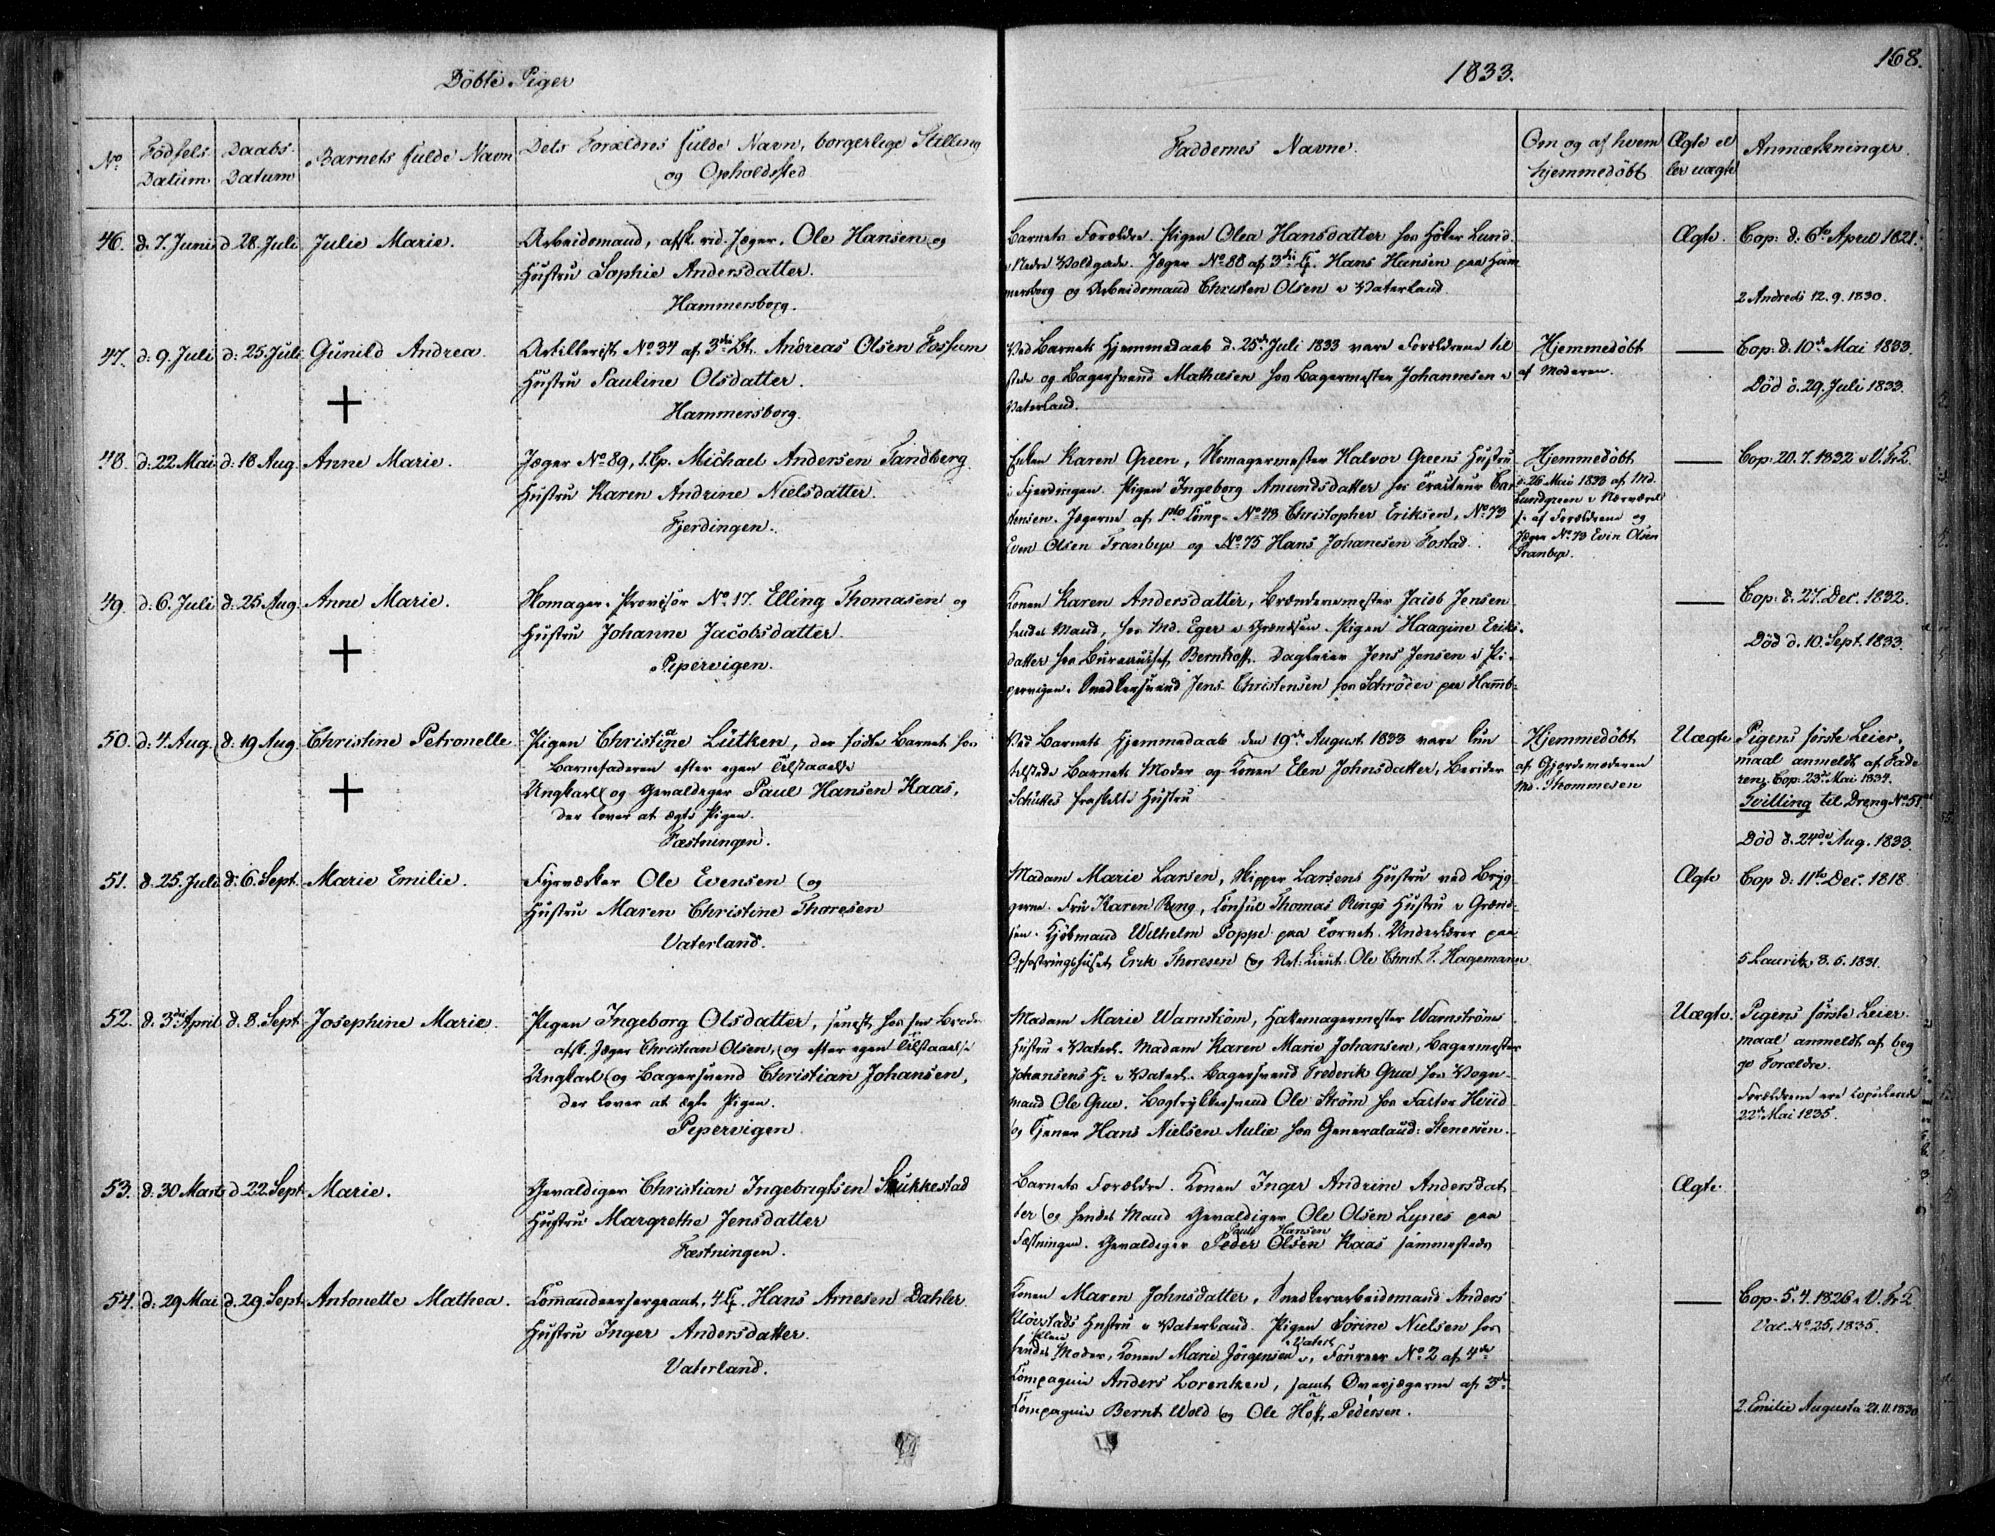 168.
Döbte Piger
1833.
No.
Födsels Datum
Daabs Datum
Barnets fulde Navn
Dets Forældres fulde Navn, borgerlige Stilling
og Opholdsted
Faddernes Navne.
Om og af hvem
hjemmedöbt
Ægte el
ler uægte
Anmærkninger.
46. d. 7. Juni d 28. Juli Julie Marie.
Arbeidsmand, afsk. rid. Jæger. Ole Hansen og
Hustru Sophie Andersdatter.
Hammersborg.
Barnets Forældre. Pigen Olea Hansdatter hos Höker Lund
i Nedre Voldgade. Jæger No 88 af 3die C. Hans Hansen paa Ham
mersborg og Arbeidsmand Christen Olsen i Vaterland
Ægte.
Cop: d. 6te April 1821.
2 Andreas 12. 9. 1830.
47. d. 9. Juli d: 25. Juli Gunild Andrea.
Artillerist No 34 af 3die Bt. Andreas Olsen Fossum
Hustru Pauline Olsdatter.
Hammersborg.
Ved Barnets Hjemmedaab d. 25de Juli 1833 vare Forældrene til
stede og Bagersvend Mathiesen hos Bagermester Johannesen i
Vaterland.
Hjemmedöbt
af Moderen.
Cop: d. 10de Mai 1833.
Död d. 29. Juli 1833.
48. d: 22 Mai d: 18 Aug. Anne Marie.
Jæger No 89, 1. Cp. Michael Andersen Sandberg
Hustru Karen Andrine Nielsdatter.
Fjerdingen.
Enken Karen Green, Skomagermester Halvor Greens Hustru
i Fjerdingen. Pigen Ingeborg Amundsdatter hos Tracteur Car
stensen. Jægerne af 1ste Comp. No 43 Christopher Eriksen, No 73
Even Olsen Tranbye og No 75 Hans Johanesen Fostad.
Hjemmedöbt
d. 26 Mai 1833 af Md.
Lundgreen i Nærværel
se af Forældrene og
Jæger No 73 Even Olsen
Tranbye.
Cop. 20. 7. 1832 i V. Fr. K.
49. d: 6. Juli d. 25 Aug. Anne Marie.
Skomager-Provisor No 17. Elling Thomasen og
Hustru Johanne Jacobsdatter.
Pipervigen.
Konen Karen Andersdatter, Brænderemester Jacob Jensen
hendes Mand, hos Md. Eger i Grændsen. Pigen Haagine Eriks
datter hos Bureauchef Bernhoft. Dagleier Jens Jensen i Pi
pervigen. Snedkersvend Jens Christensen hos Schröder paa Hamb:
Cop: d. 27. Dec. 1832.
Död d. 10. Sept. 1833.
50. d: 4. Aug. d: 19 Aug Christine Petronelle
Pigen Christiane Lütken, der födte Barnet hos
Barnefaderen efter egen Tilstaaelse
Ungkarl og Gevaldiger Paul Hansen Kaas,
der lover at ægte Pigen.
Fæstningen.
Ved Barnets Hjemmedaab den 19de August 1833 vare kun
tilstede Barnets Moder og Konen Elen Johnsdatter, Berider
Schüttes fraskilte Hustru
Hjemmedöbt
af Gjordemoderen
Md. Thommesen
Uægte
Pigens förste Leier,
maal anmeldt af Fade
ren. Cop. 23de Mai 1834.
Tvilling til Dreng No 51
Död d. 24de Aug. 1833.
51. d. 25. Juli d: 6. Sept. Marie Emilie.
Fyrværker Ole Evensen og
Hustru Maren Christine Thoresen
Vaterland.
Madam Marie Larsen, Skipper Larsens Hustru ved Bryg
gerne. Fru Karen Ring, Consul Thomas Rings Hustru i Grænd
sen. Kjöbmand Wilhelm Poppe paa Torvet. Underlærer paa
Opfostringshuset Erik Thoresen og Art: Lieut: Ole Christ. F. Hagemann
Ægte
Cop d: 11te Dec. 1818.
5 Lauritz, 8. 6. 1831.
52. d. 3die April d. 8. Sept Josephine Marie.
Pigen Ingeborg Olsdatter, senest hos sin Broder
afsk. Jæger Christian Olsen, og efter egen Tilstaaelse
Ungkarl og Bagersvend Christian Johansen,
der lover at ægte Pigen.
Pepervigen.
Madam Marie Warnström, Hattemagermester Warnströms
Hustru i Vaterl. Madam Karen Marie Johansen, Bagermester
Johansens H: i Vaterl. Bagersvend Frederik Grue hos Vogn
mand Ole Grue. Bogtrykkersvend Ole Ström hos Factor Hviid
og Tjener Hans Nielsen Aulie hos Generalaud: Stenersen.
Uægte.
Pigens förste Leier
maal anmeldt af beg
ge Forældre.
Forældrene ere copulerede
22de Mai 1835.
53. d: 30 Marts d 22. Sept. Marie.
Gevaldiger Christian Ingebrigtsen Stukkestad
Hustru Margrethe Jensdatter
Fæstningen.
Barnets Forældre. Konen Inger Andrine Andersdat
ter og hendes Mand Gevaldiger Ole Olsen Lynes paa
Paul Hansen
Fæstningen. Gevaldiger Peder Olsen Kaas sammesteds
Ægte.
54. d: 29 Mai d. 29. Sept Antonette Mathea.
Commandeersergeant, 4 C. Hans Arnesen Dahler
Hustru Inger Andersdatter.
Vaterland.
Konen Maren Johnsdatter, Snedkerarbeidsmand Anders
Kloxstads Hustru i Vaterland. Pigen Sörine Nielsen hos
hendes Moder, Konen Marie Jörgensen i Vaterl, Foureer No 2 af 4de
Compagnie Anders Lorentzen, samt Overjægerne af 3de
Compagnie Bernt Wold og Ole Höst Pedersen.
Cop. 5. 4. 1826 i V. Fr. K
Vac. No 25, 1835.
2. Emilie Augusta 21. 11. 1830